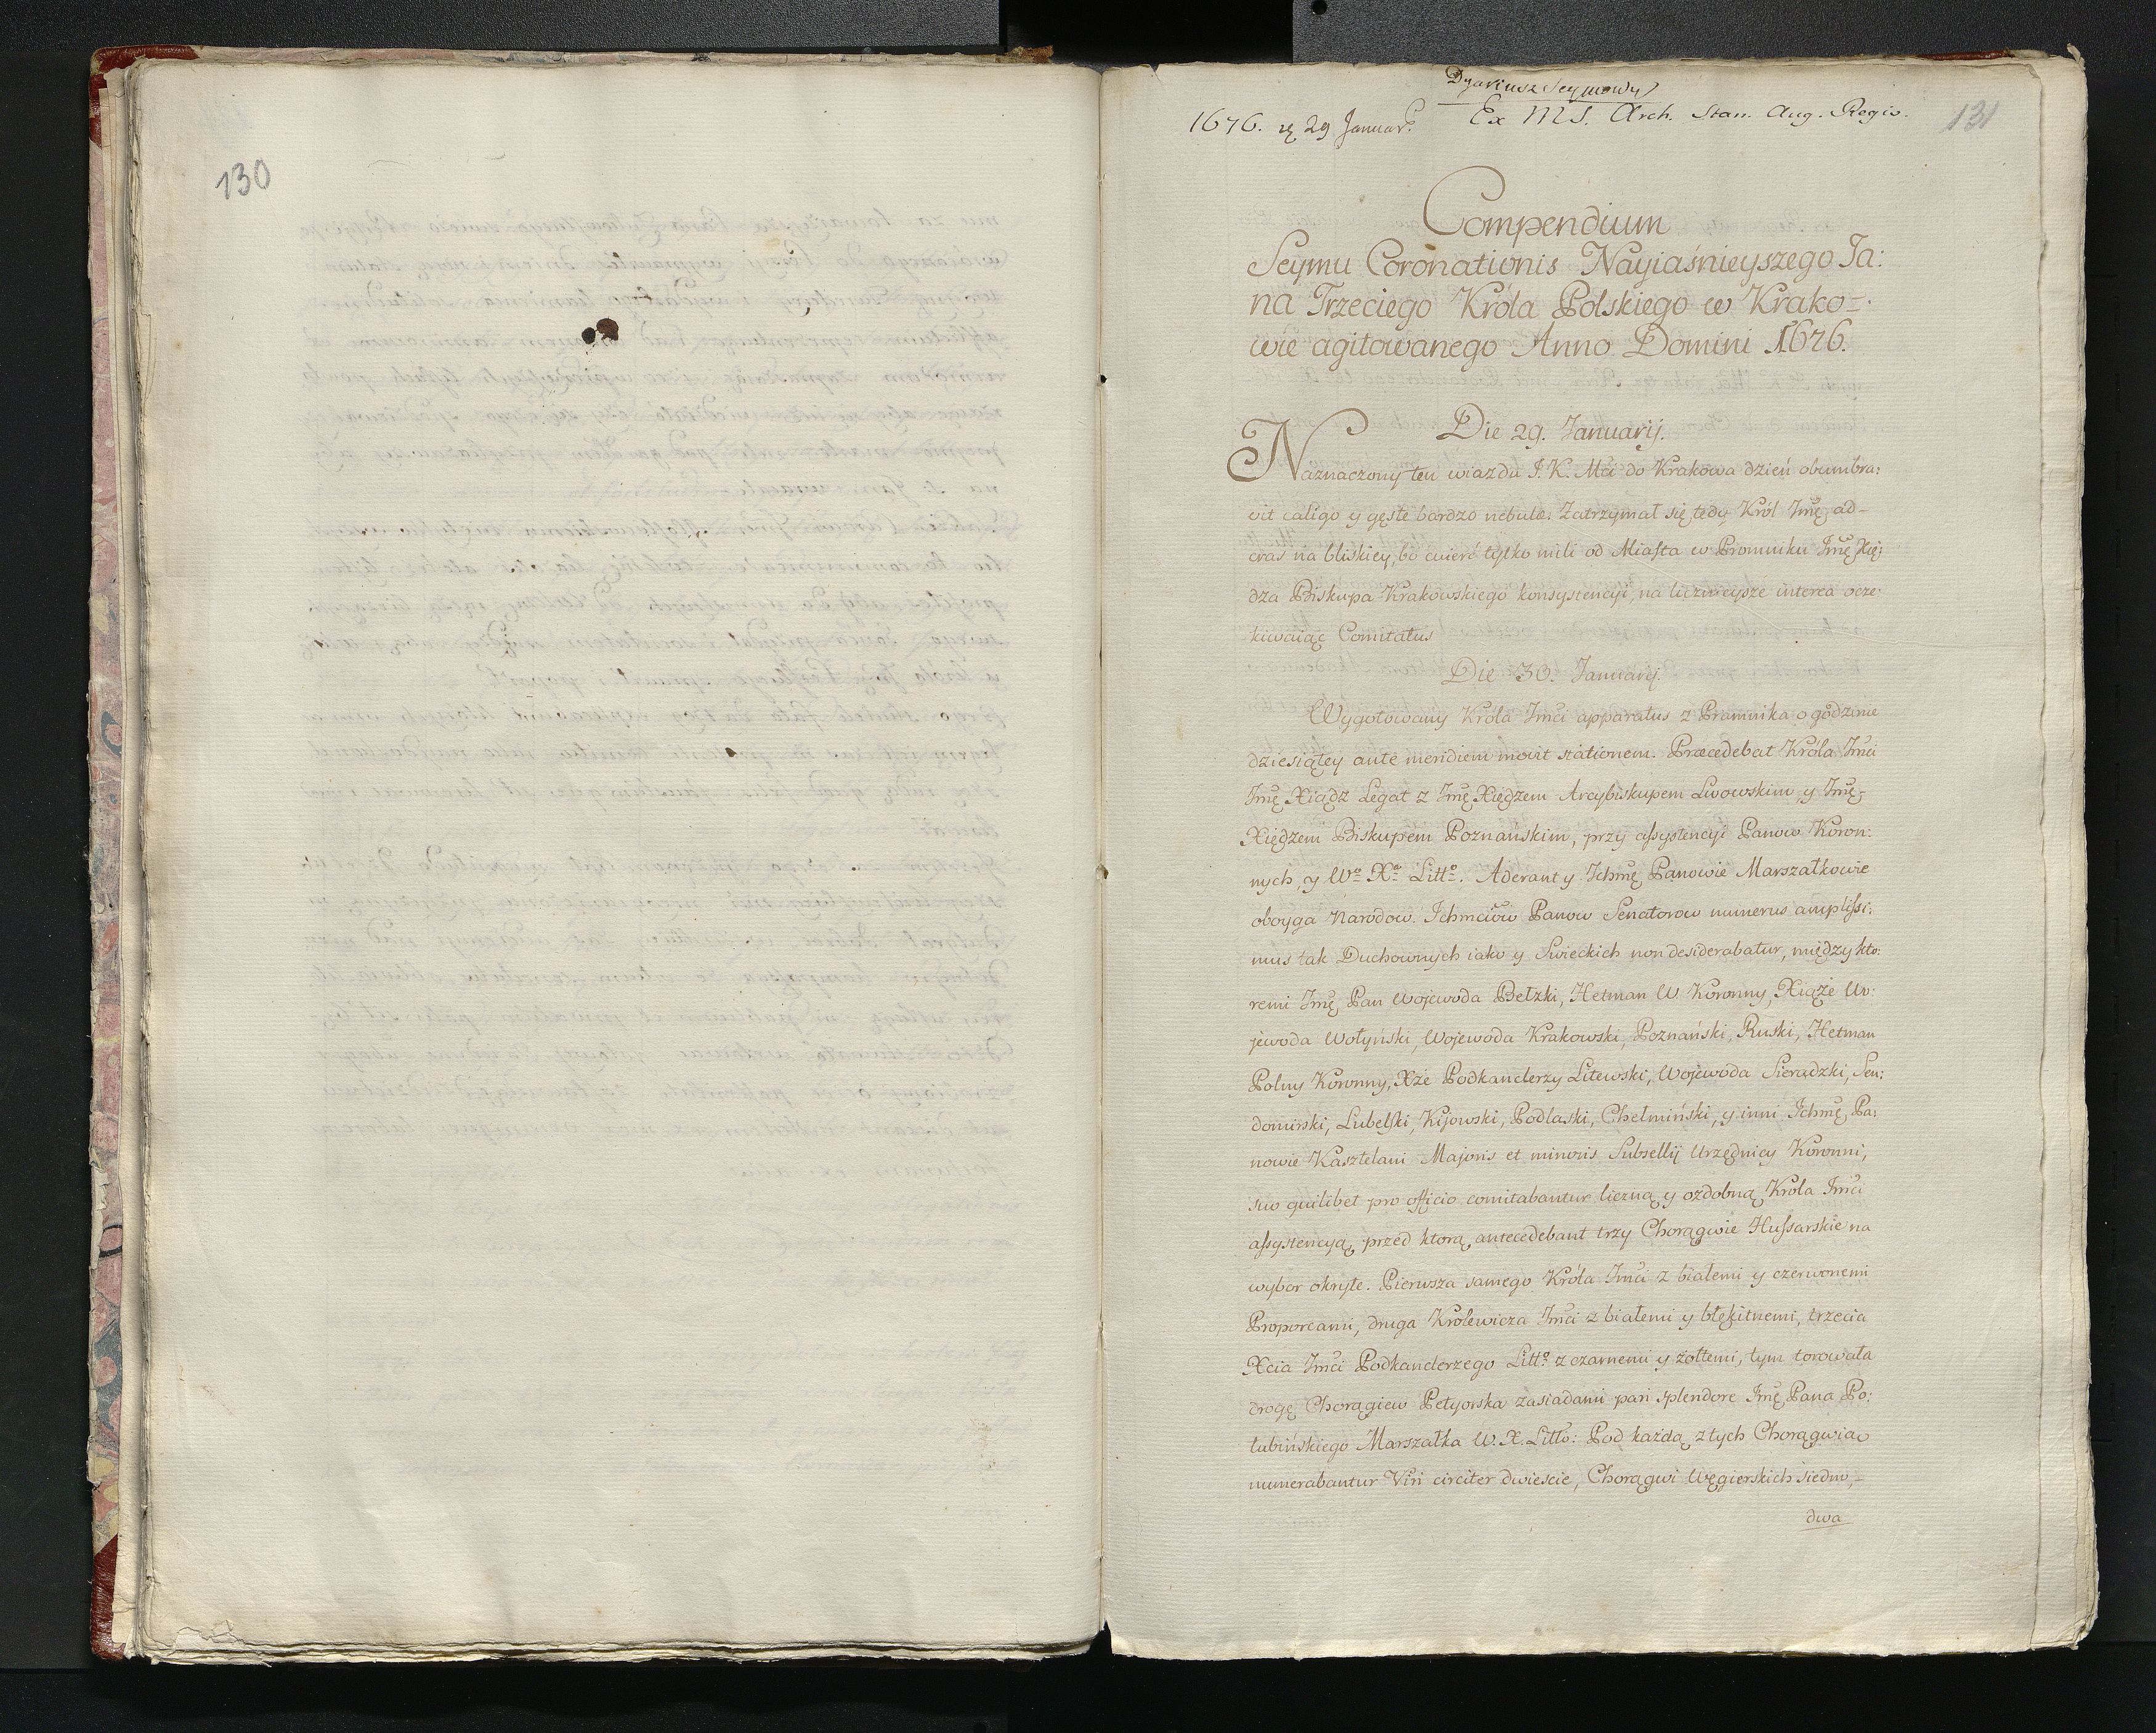 130
Dyariusz Seymowy
1676. 29 Januar. Ex MS. Arch. Stan. Aug. Regis.
131
Compendium
Seymu Coronationis Nayiaśnieyszego Ja:
na Trzeciego Króla Polskiego w Krako=
wie agitowanego Anno Domini 1676.
Die 29. Januarij.
Naznaczony ten wiazdu J. K. Mci do Krakowa dzień obumbra:
vit caligo y gęste bardzo nebulæ. Zatrzymał się tedy Król Jmę ad-
cras na bliskiey, bo cwierć tylko mili od Miasta w Promniku Jmę Xię:
dza Biskupa Krakowskiego konsystencyi, na licznieysze interea ocze:
kiwaiąc Comitatus
Die 30. Januarij.
Wygotowany Króla Jmci apparatus z Pramnika o godzinie
dziesiątey ante meridiem movit stationem. Præcedebat Króla Jmci
Jmę Xiądz Legat z Jmę Xiędzem Arcybiskupem Lwowskim y Jmę
Xiędzem Biskupem Poznańskim, przy assystencyi Panow Koron:
nych, y Wo Xa Litto. Aderant y Ichmę Panowie Marszałkowie
oboyga Narodow. Ichmciów Panow Senatorow numerus amplissi:
mus tak Duchownych iako y Swieckich non desiderabatur, między kto:
remi Jmę Pan Wojewoda Bełzki, Hetman W. Koronny, Xiąże Wo:
jewoda Wołyński, Wojewoda Krakowski, Poznański, Ruski, Hetman
Polny Koronny, Xże Podkanclerzy Litewski, Wojewoda Sieradzki, Sen:
domirski, Lubelski, Kijowski, Podlaski, Chełmiński, y inni Ichmę Pa:
nowie Kasztelani Majoris et minoris Subsellij Urzędnicy Koronni,
suo quilibet pro officio comitabantur liczną y ozdobną Króla Jmci
assystencyą, przed ktorą antecedebant trzy Chorągwie Hussarskie na
wybor okryte. Pierwsza samego Króla Jmci z białemi y czerwonemi
Proporcami, druga Królewicza Jmci z białemi y błękitnemi, trzecia
Xcia Jmci Podkanclerzego Litto z czarnemi y żołtemi, tym torowała
drogę Chorągiew Petyorska zasiadami pari splendore Jmę Pana Po:
łubińskiego Marszałka W. X. Litto: Pod każdą z tych Chorągwią
numerabantur Viri circiter dwiescie, Chorągwi Węgierskich siedm,
dwa